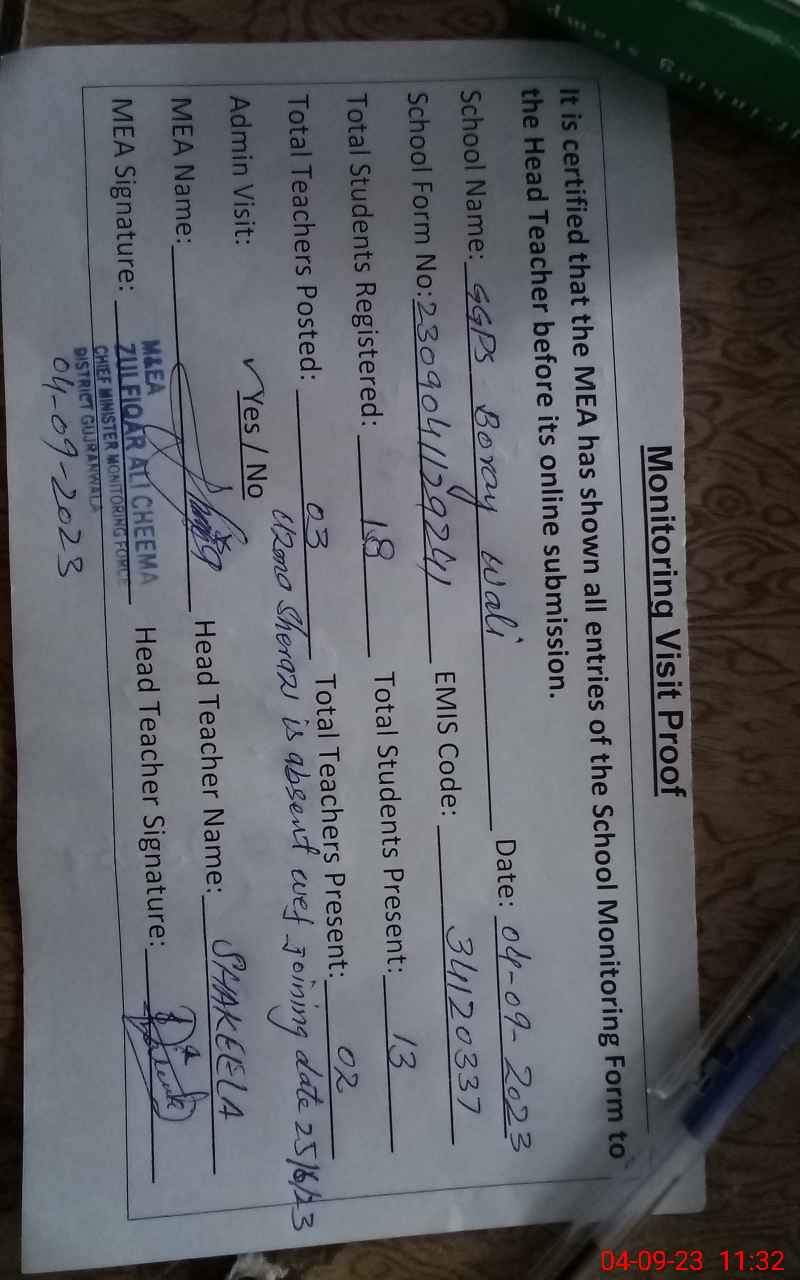 Monitoring Visit Proof
It is certified that the MEA has shown all entries of the School Monitoring Form to
the Head Teacher before its online submission.
School Name: GGPS Boray Wali Date: 04-09-2023
School Form No: 2309041129241 EMIS Code: 34120337
Total Students Registered: 18 Total Students Present: 13
Total Teachers Posted: 03 Total Teachers Present: 02
Uzma Sherazi is absent wef Joining date 25/8/23
Admin Visit: ✓ Yes / No
MEA Name: Head Teacher Name: SHAKEELA
MEA Signature: Head Teacher Signature:
M&EA
ZULFIQAR ALI CHEEMA
CHIEF MINISTER MONITORING FORCE
DISTRICT GUJRANWALA
04-09-2023
04-09-23 11:32